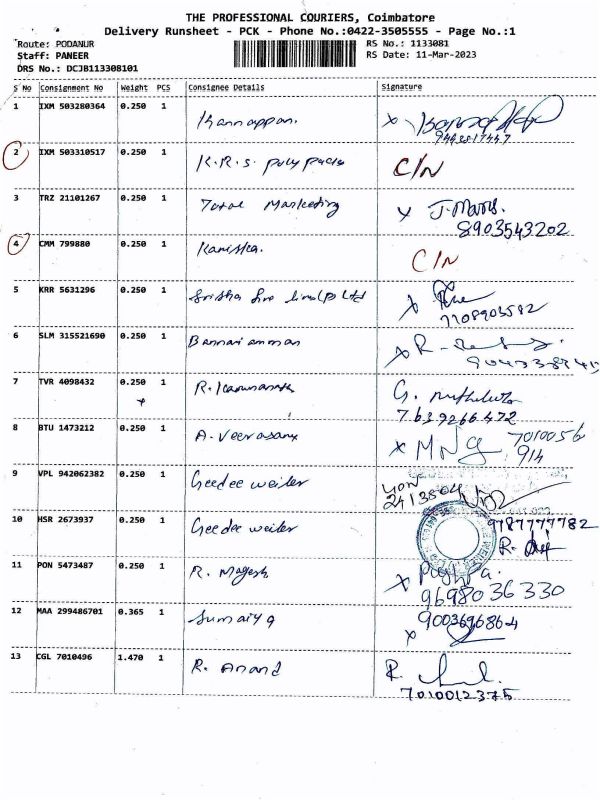 THE PROFESSIONAL COURIERS, Coimbatore
Delivery Runsheet - PCK - Phone No.:0422-3505555 - Page No.:1
Route: PODANUR RS No.: 1133081
Staff: PANEER RS Date: 11-Mar-2023
DRS No.: DCJB113308101
S No Consignment No Weight PCS Consignee Details Signature
1 IXM 503280364 0.250 1 Kannappan.
2 IXM 503310517 0.250 1 K.R.S. poly packs C/N
3 TRZ 21101267 0.250 1 Total Marketing X J.
8903543202
4 CMM 799880 0.250 1 Kaniska. C/N
5 KRR 5631296 0.250 1 Ltd X
7708903582
6 SLM 315521690 0.250 1 Bannari amman X R.
7 TVR 4098432 0.250 1 R. G.
7639266472
8 BTU 1473212 0.250 1 A. X 7010056
914
9 VPL 942062382 0.250 1 Geedee weiler
10 HSR 2673937 0.250 1 Geedee weiler 9787777782
R.
11 PON 5473487 0.250 1 R. Magesh X
9698036330
12 MAA 299486701 0.365 1 Sumaiya 9003696864
X
13 CGL 7010496 1.470 1 R. Anand R.
7010012375